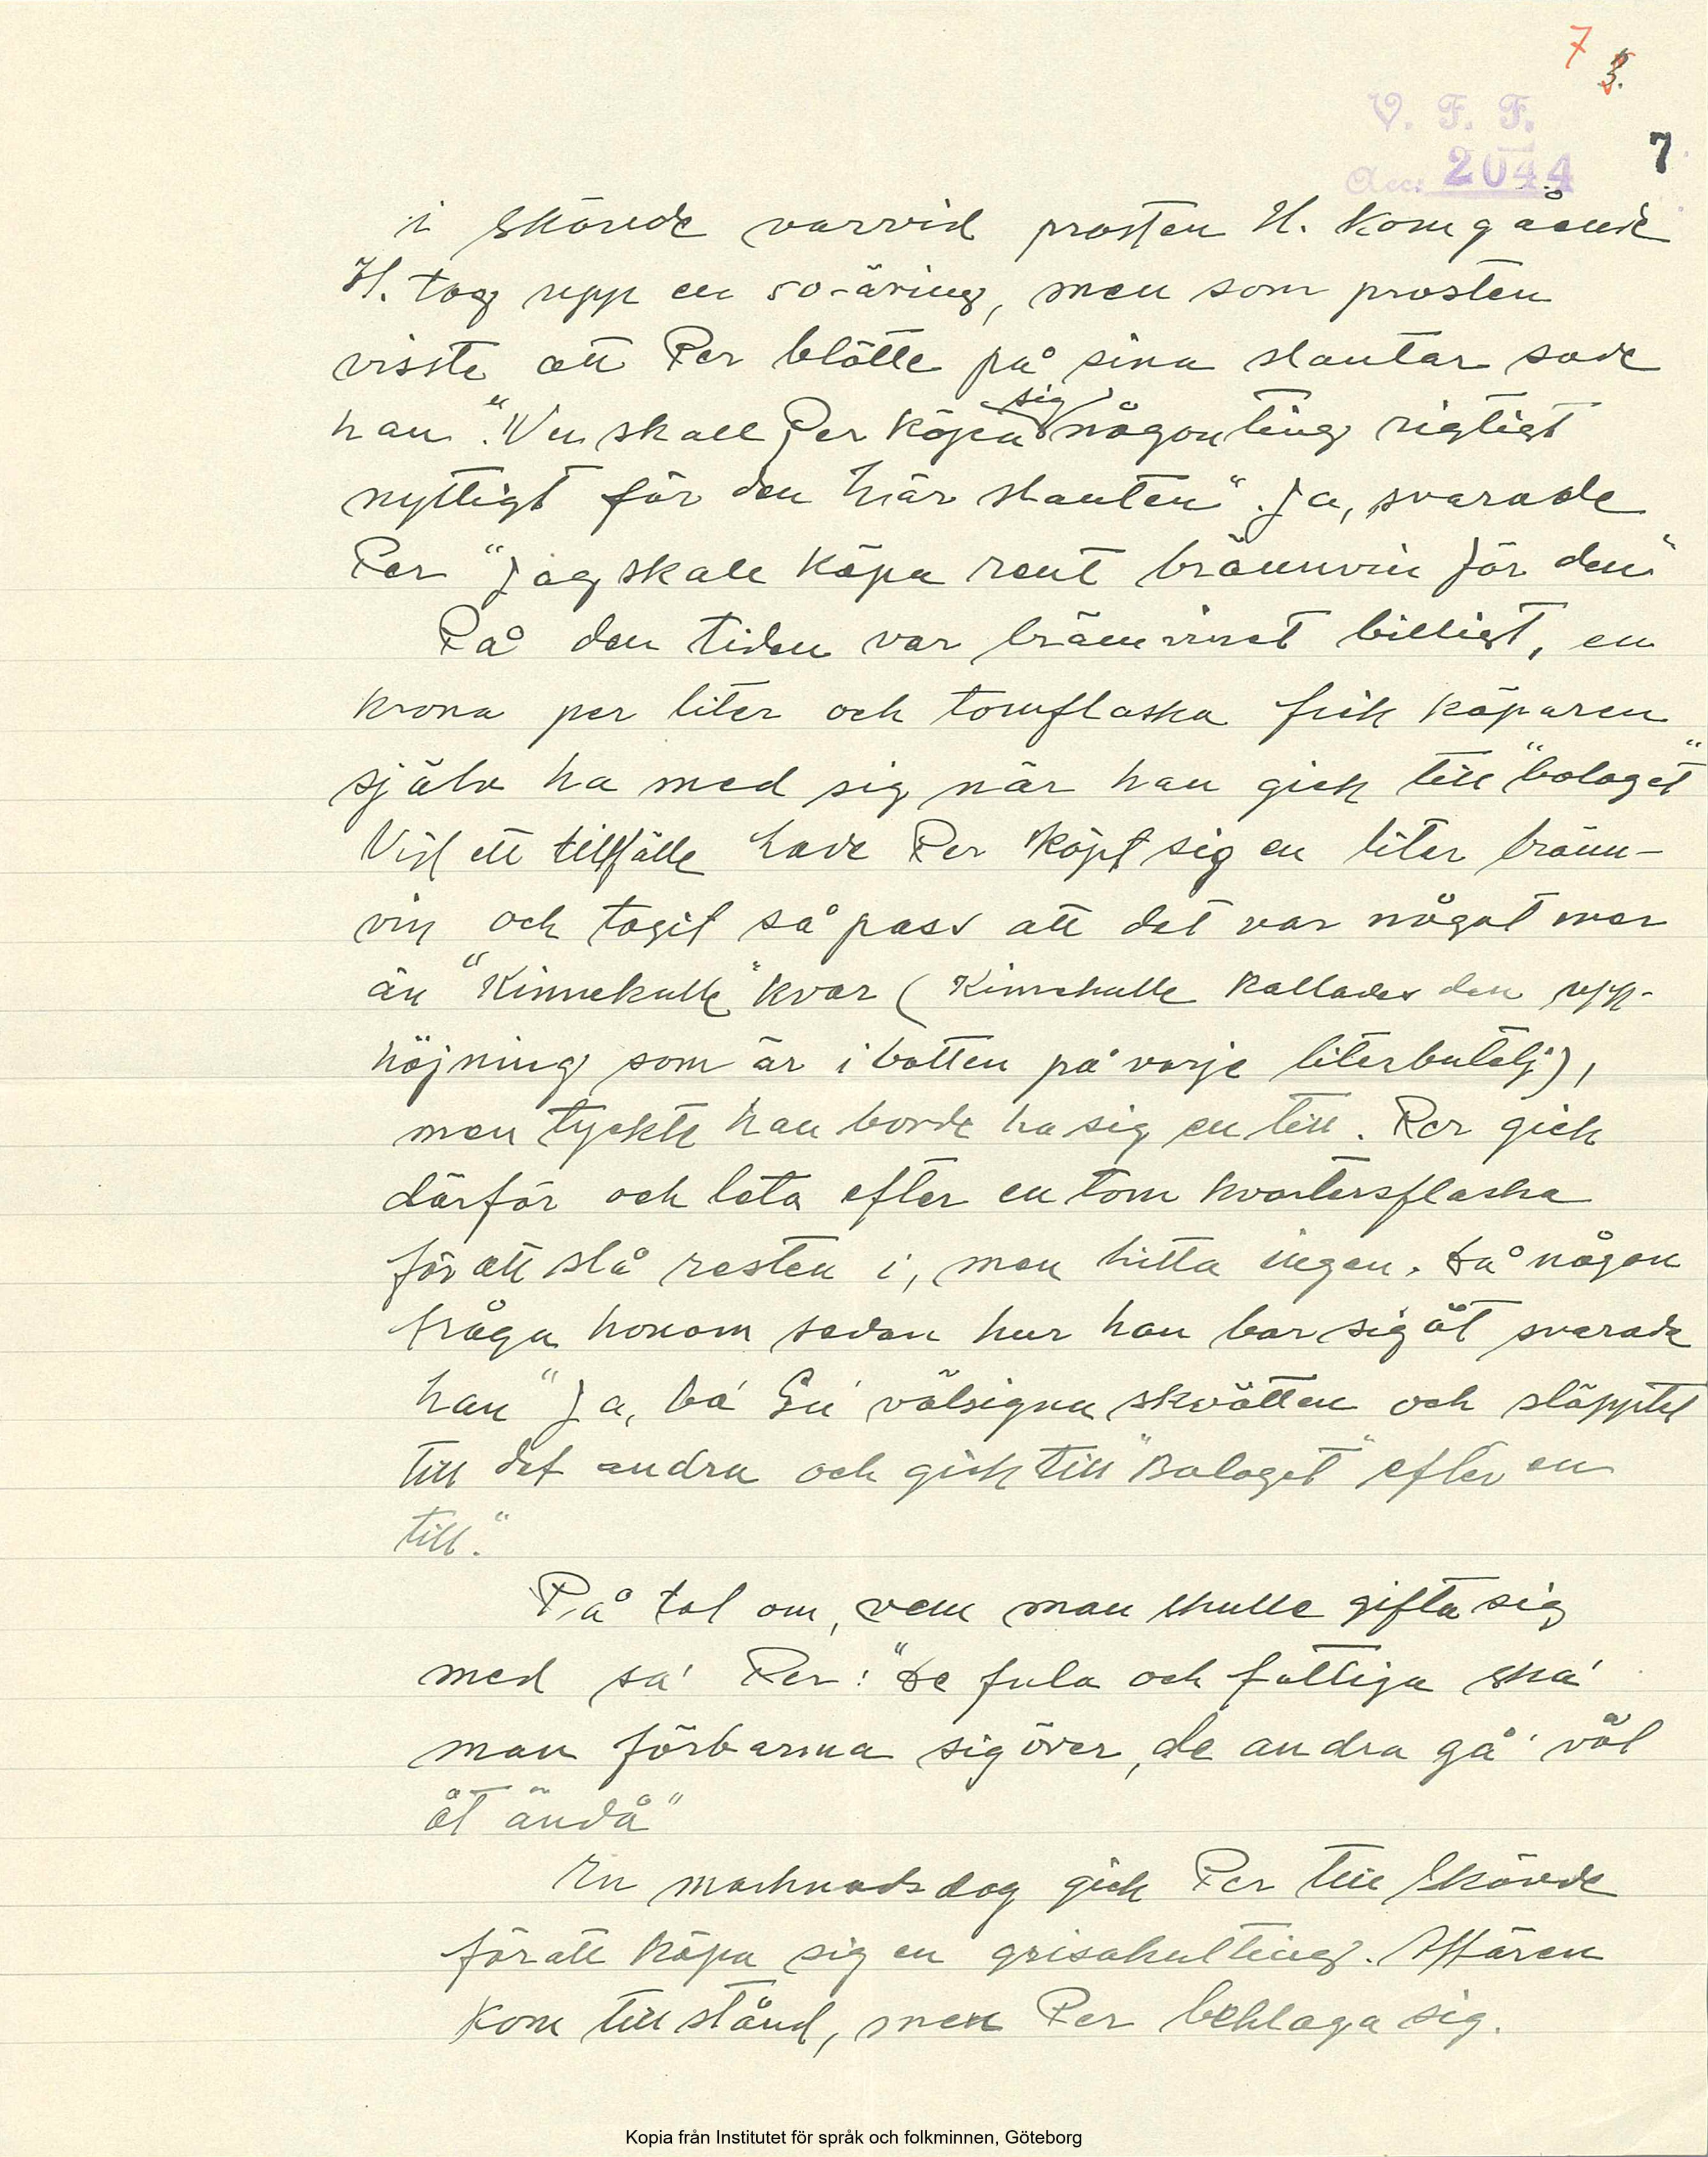 7 3.
V. F. F.
Acc. 2044
7
i Skövde varvid prosten H. kom gående
H. tog upp en 50-äring, men som prosten
visste att Per blötte på sina slantar sade
han. "Nu skall Per köpa sig någonting rigtigt
nyttigt för den här slanten". Ja, svarade
Per "Jag skall köpa rent brännvin för den"
På den tiden var brännvinet billigt, en
krona per liter och tomflaska fick köparen
själv ha med sig när han gick till "bolaget"
Vid ett tillfälle hade Per köpt sig en liter bränn-
vin och tagit så pass att det var något mer
än "Kinnekulle" kvar (Kinnekulle kallades den upp-
höjning som är i botten på varje literbutelj),
men tyckte han borde ha sig en till. Per gick
därför och leta efter en tom kvartersflaska
för att slå resten i, men hitta ingen. Då någon
fråga honom sedan hur han bar sig åt svarade
han "Ja, ba' Gu' välsigna skvätten och släppte
till det andra och gick till "Bolaget" efter en
till."
På tal om, vem man skulle gifta sig
med sa' Per: "De fula och fattiga ska'
man förbarma sig över, de andra gå' väl
åt ändå"
En marknadsdag gick Per till Skövde
för att köpa sig en grisakulting. Affären
kom till stånd, men Per beklaga sig.
Kopia från Institutet för språk och folkminnen, Göteborg